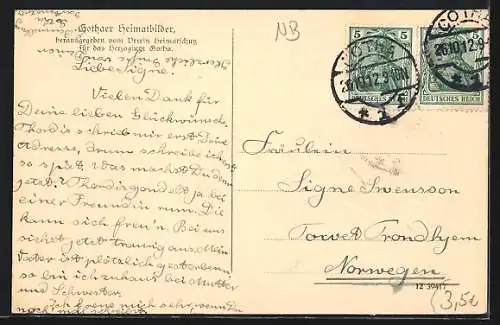 NB
Gothaer Heimatbilder,
herausgegeben vom Verein Heimatschutz
für das Herzogtum Gotha.
Liebe Signe.
Vielen Dank für
Deine lieben Glückwünsche.
Thordis schrieb mir erst Deine
Adresse, drum schreibe ich erst
so spät. Was machst Du denn
jetzt? Thordis gondelt ja bei
einer Freundin rum. Die
kann sich freu'n. Bei uns
sieht jetzt traurig aus. Mein
Vater ist plötzlich gestorben,
so bin ich zuhaus bei Mutter
und Schwester.
Ich freue mich sehr, wenn du
noch mal
5 5
DEUTSCHES REICH
5
DEUTSCHES REICH
GOTHA
26.10.12.9
* 1 *
GOTHA
26.10.12.9
* 1
Fräulein
Signe Swensson
Torvet Trondhjem
Norwegen
12 39417
3,50